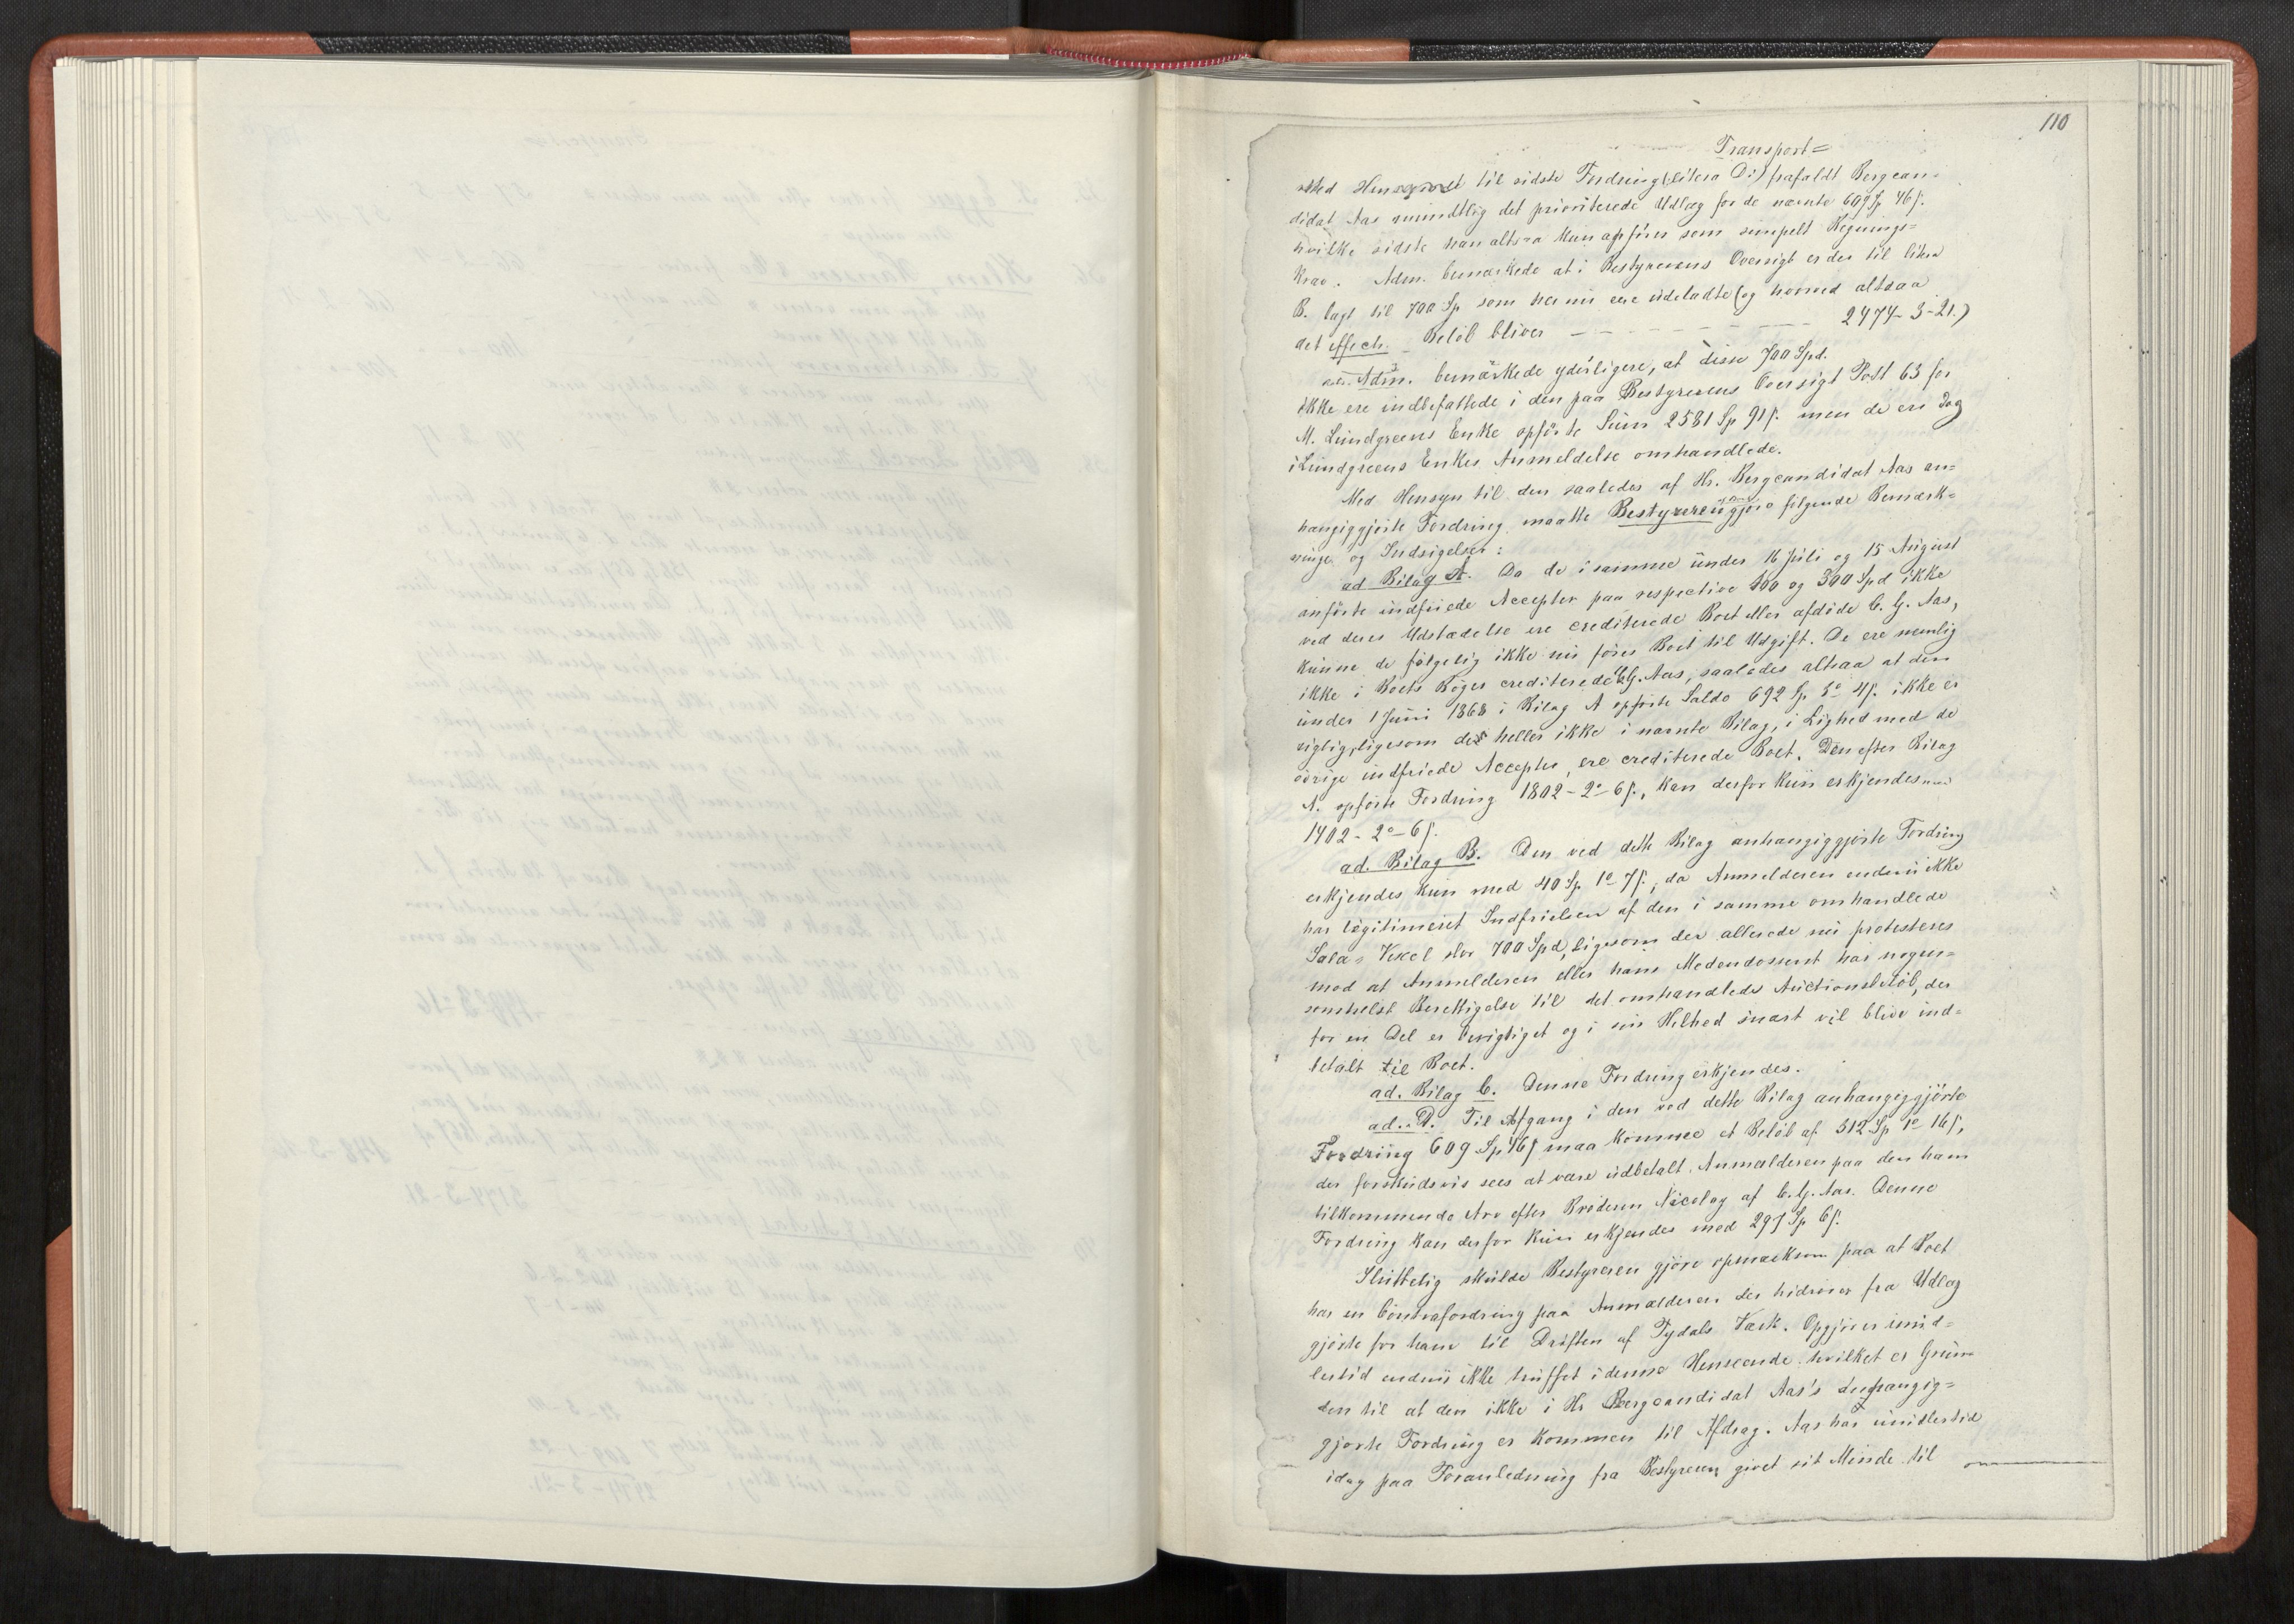 110
Transport=
Med Hensyn til sidste Fordring (litera D:) frafaldt Bergcan-
didat Aas mundtlig det prioriterede Udlæg for de nævnte 609 Sp 46 s.
hvilke sidste han altsaa kun opfører som simpelt Regnings=
krav. Adm. bemærkede at i Bestyrerens Oversigt er der til litra
B. lagt til 700 Sp som her nu ere udeladte (og hvorved altsaa
det effect. Beløb bliver - - - - - - - - 2474-3-21.)
Adm. bemærkede yderligere, at disse 700 Spd.
ikke ere indbefattede i den paa Bestyrerens Oversigt Post 63 for
M. Lundgreens Enke opførte Sum 2581 Sp 91 s. men de ere dog
i Lundgreens Enkes Anmeldelse omhandlede.
Med Hensyn til den saaledes af Hr. Bergcandidat Aas an=
hængiggjorte Fordring maatte Bestyreren gjøre følgende Bemærk=
ninger og Indsigelser:
ad Bilag A. Da de i samme under 16 Juli og 15 August
anførte indfriede Accepter paa respective 100 og 300 Spd ikke
ved deres Udstædelse ere crediterede Boet eller afdøde C. G. Aas,
kunne de følgelig ikke nu føres Boet til Udgift. De ere nemlig
ikke i Boets Bøger crediterede C. G. Aas, saaledes altsaa at den
under 1 Juni 1868 i Bilag A opførte Saldo 692 Sp 3 o 4 s. ikke er
rigtig, ligesom de heller ikke i nævnte Bilag, i Lighed med de
øvrige indfriede Accepter, ere crediterede Boet. Den efter Bilag
A. opførte Fordring 1802 - 2 o - 6 s., kan derfor kun erkjendes med
1402 - 2 o - 6 s.
ad. Bilag B. Den ved dette Bilag anhængiggjorte Fordring
erkjendes kun med 40 Sp 1 o 7 s., da Anmelderen endnu ikke
har legitimeret Indfrielsen af den i samme omhandlede
Sala-Vexel stor 700 Spd, ligesom der allerede nu protesteres
mod at Anmelderen eller hans Medendossent har nogen=
somhelst Berettigelse til det omhandlede Auctionsbeløb, der
for en Del er berigtiget og i sin Helhed snart vil blive ind=
betalt til Boet.
ad. Bilag C. Denne Fordring erkjendes.
ad. D. Til Afgang i den ved dette Bilag anhængiggjørte
Fordring 609 Sp 46 s maa komme et Beløb af 312 Sp 1 o 16 s,
der forskudsvis sees at være udbetalt Anmelderen paa den ham
tilkommende Arv efter Broderen Nicolay af C. G. Aas. Denne
Fordring kan derfor kun erkjendes med 297 Sp 6 s.
Sluttelig skulde Bestyreren gjøre opmærksom paa at Boet
har en Contrafordring paa Anmelderen der hidrører fra Udlæg
gjorte for ham til Driften af Tydals Værk. Opgjør er imid=
lertid endnu ikke truffet i denne Henseende hvilket er Grun=
den til at den ikke i Hr Bergcandidat Aas's anhængig=
gjorte Fordring er kommen til Afdrag. Aas har imidlertid
idag paa Foranledning fra Bestyreren givet sit Minde til